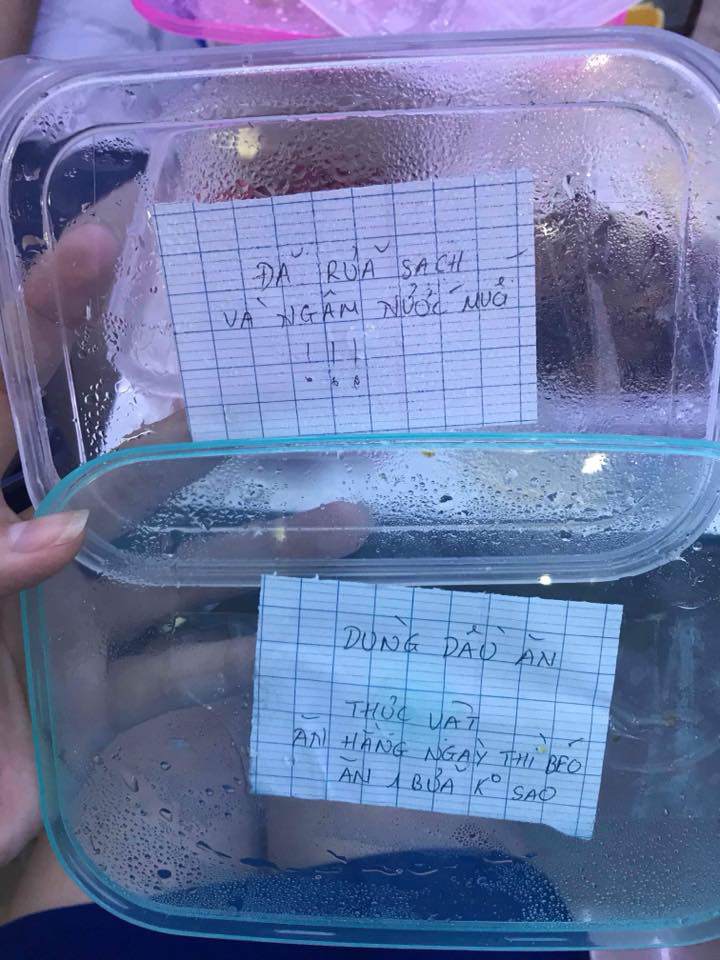 ĐÃ RỬA SẠCH
VÀ NGÂM NƯỚC MUỐI
! ! !
DÙNG DẦU ĂN
THỰC VẬT
ĂN HÀNG NGÀY THÌ BÉO
ĂN 1 BỮA K° SAO